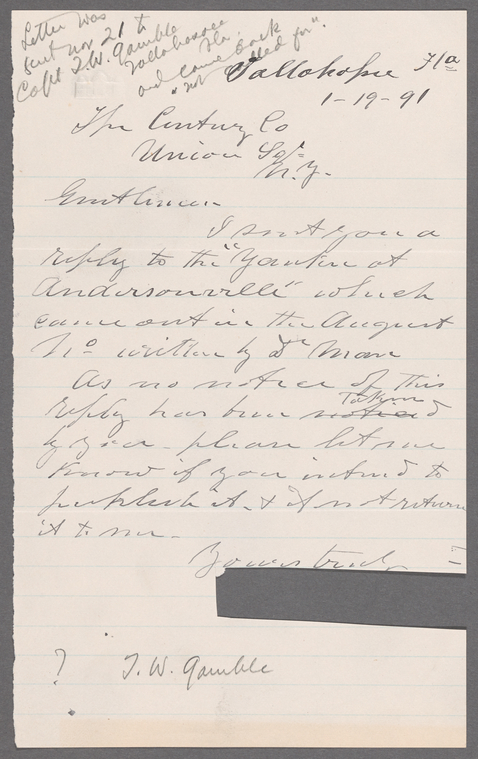 Letter was
sent Nov 21 to
Capt T.W. Gamble
Tallahassee
Fla.
and came back
"not called for".
Tallahassee Fla
1-19-91
The Century Co
Union Sqr
N.Y.
Gentlemen
I sent you a
reply to the "Yankee at
Andersonville" which
came out in the August
No written by Dr Mann
As no notice of this
Taken
reply has been noticed
by you - please let me
know if you intend to
publish it - & if not return
it to me -
Yours truly
? T.W. Gamble